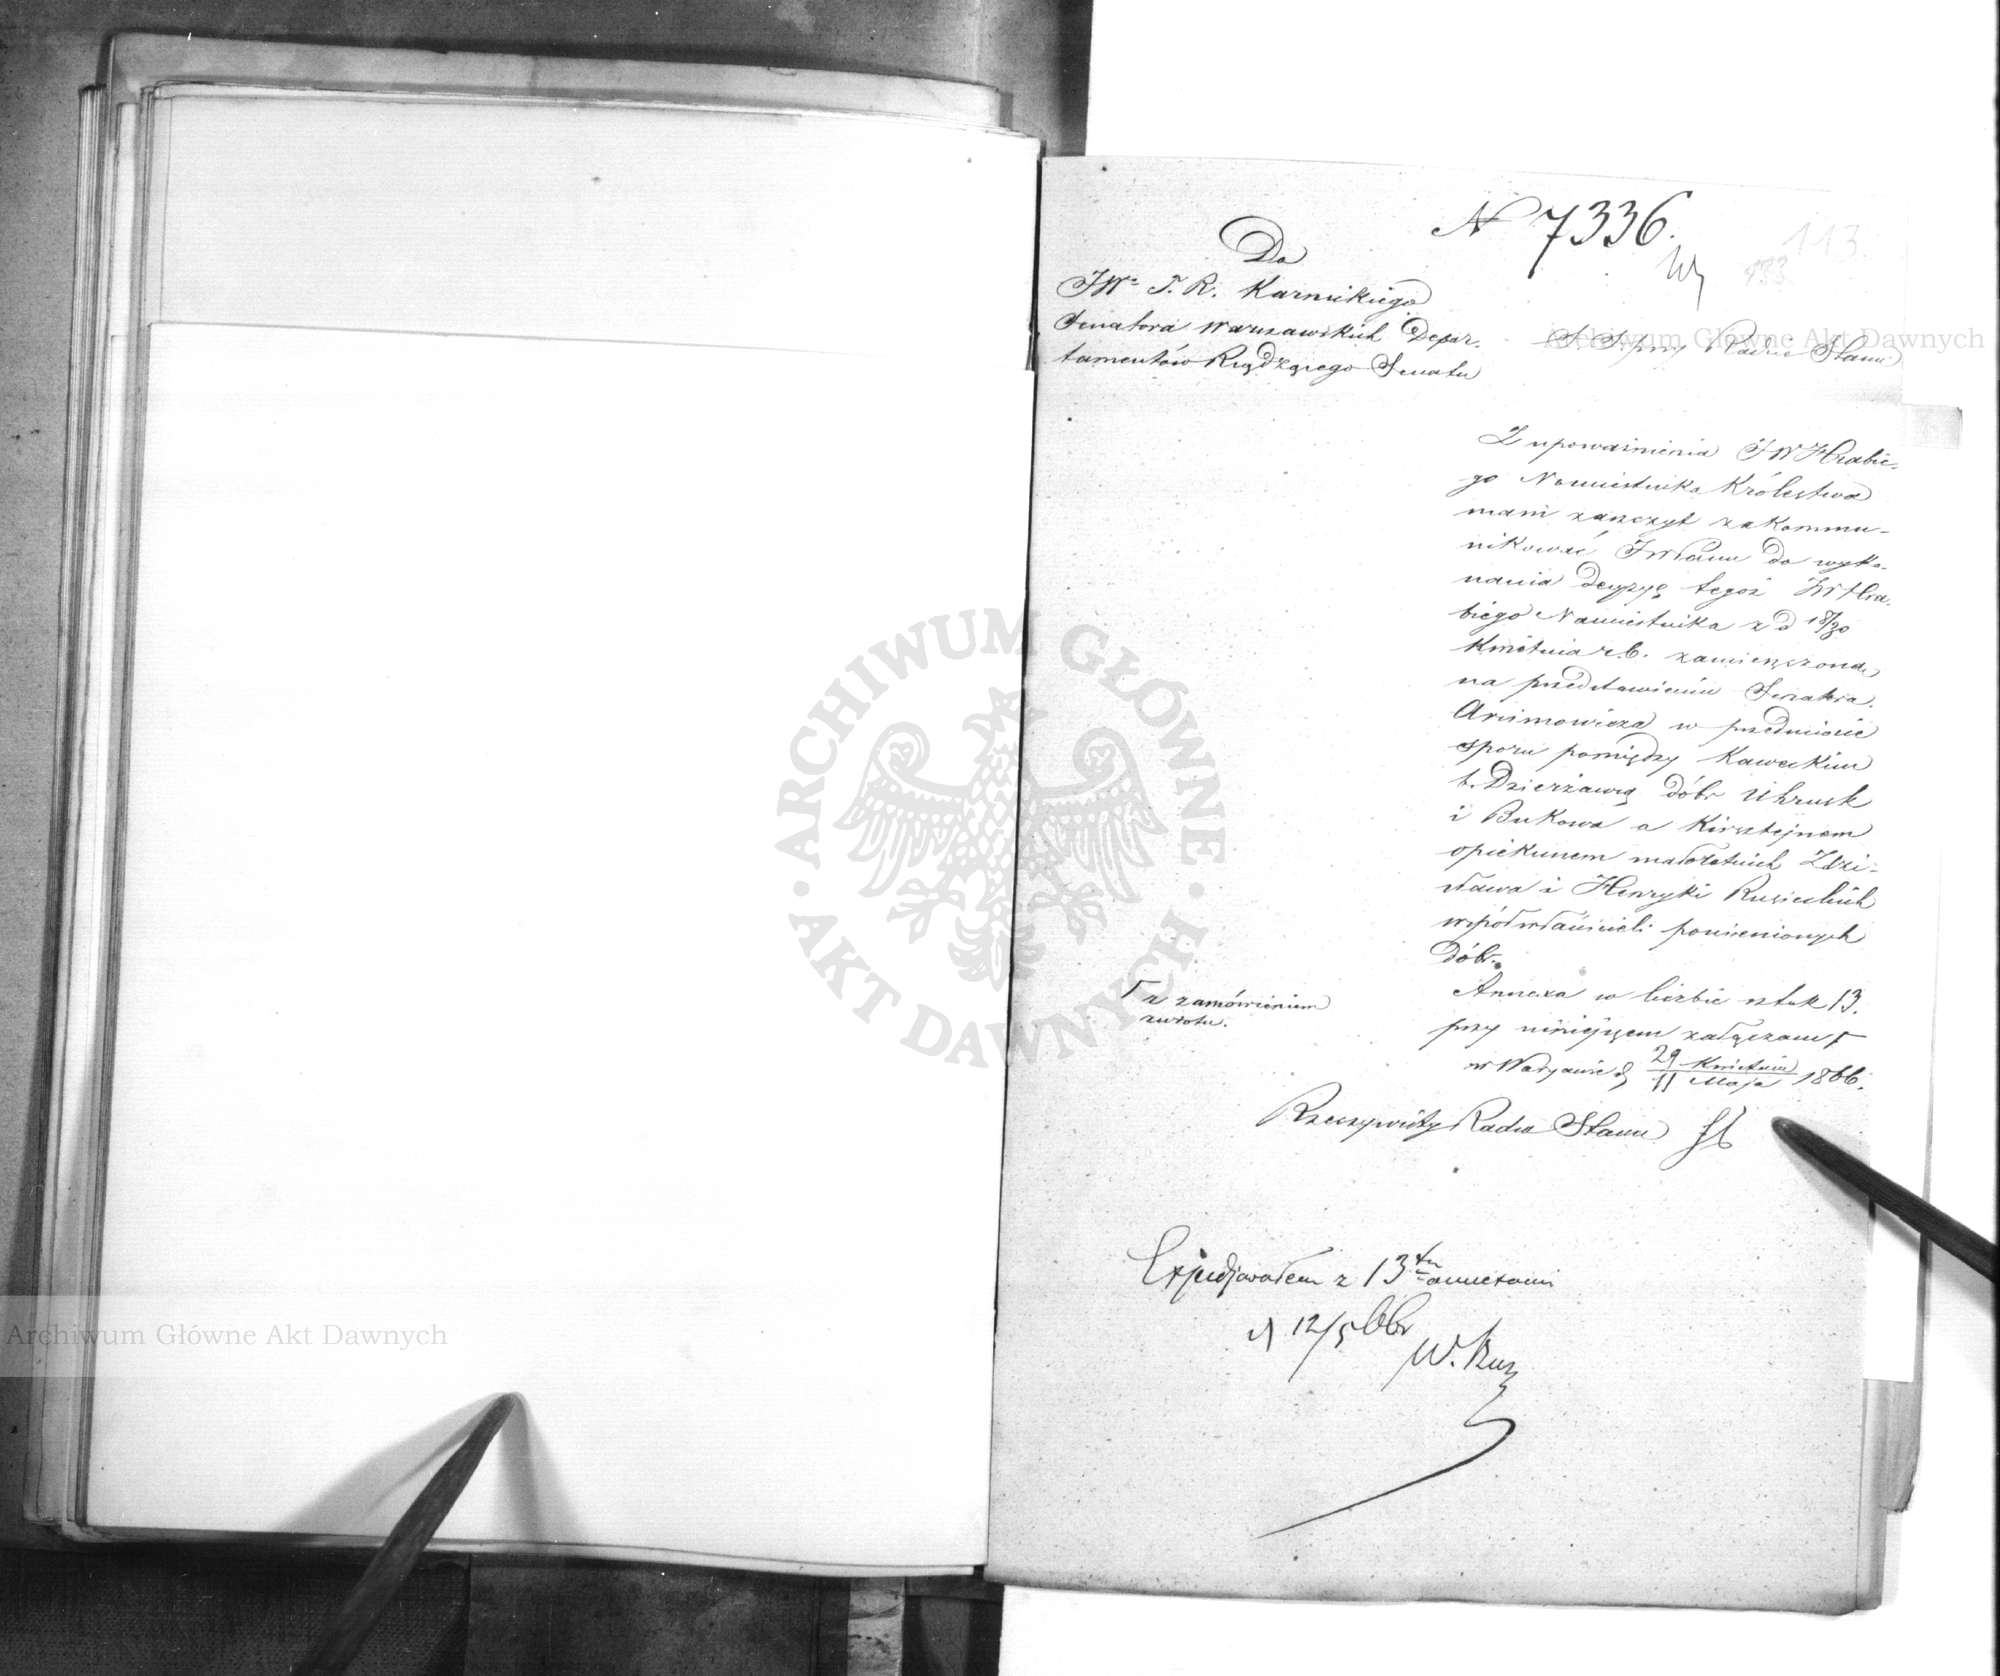 N 7336.
113
133
Do
JW. T. R. Karnickiego
Senatora Warszawskich Depar-
tamentów Rządzącego Senatu
S. S. przy Radzie Stanu
Z upoważnienia JW Hrabie-
go Namiestnika Królestwa
mam zaszczyt zakommu-
nikować JWPanu do wyko-
nania decyzyę tegoż JW Hra-
biego Namiestnika z d 18/30
Kwietnia r.b. zamieszczoną
na przedstawieniu Senatora
Arcimowicza w przedmiocie
sporu pomiędzy Kaweckim
b. Dzierżawcą dóbr Uhrusk
i Bukowa a Kirsztejnem
opiekunem małoletnich Zdzi-
sława i Henryki Rusieckich
współwłaścicieli pomienionych
dóbr.
Annexa w liczbie sztuk 13.
przy niniejszem załączam Γ
Γ z zamówieniem
zwrotu.
w Warszawie d 29 Kwietnia / 11 Maja 1866.
Rzeczywisty Radca Stanu
Expedjowałem z 13tu annexami
d 12/5 66r
W. Ruz
ARCHIWUM GŁÓWNE
AKT DAWNYCH
Archiwum Główne Akt Dawnych
Archiwum Główne Akt Dawnych